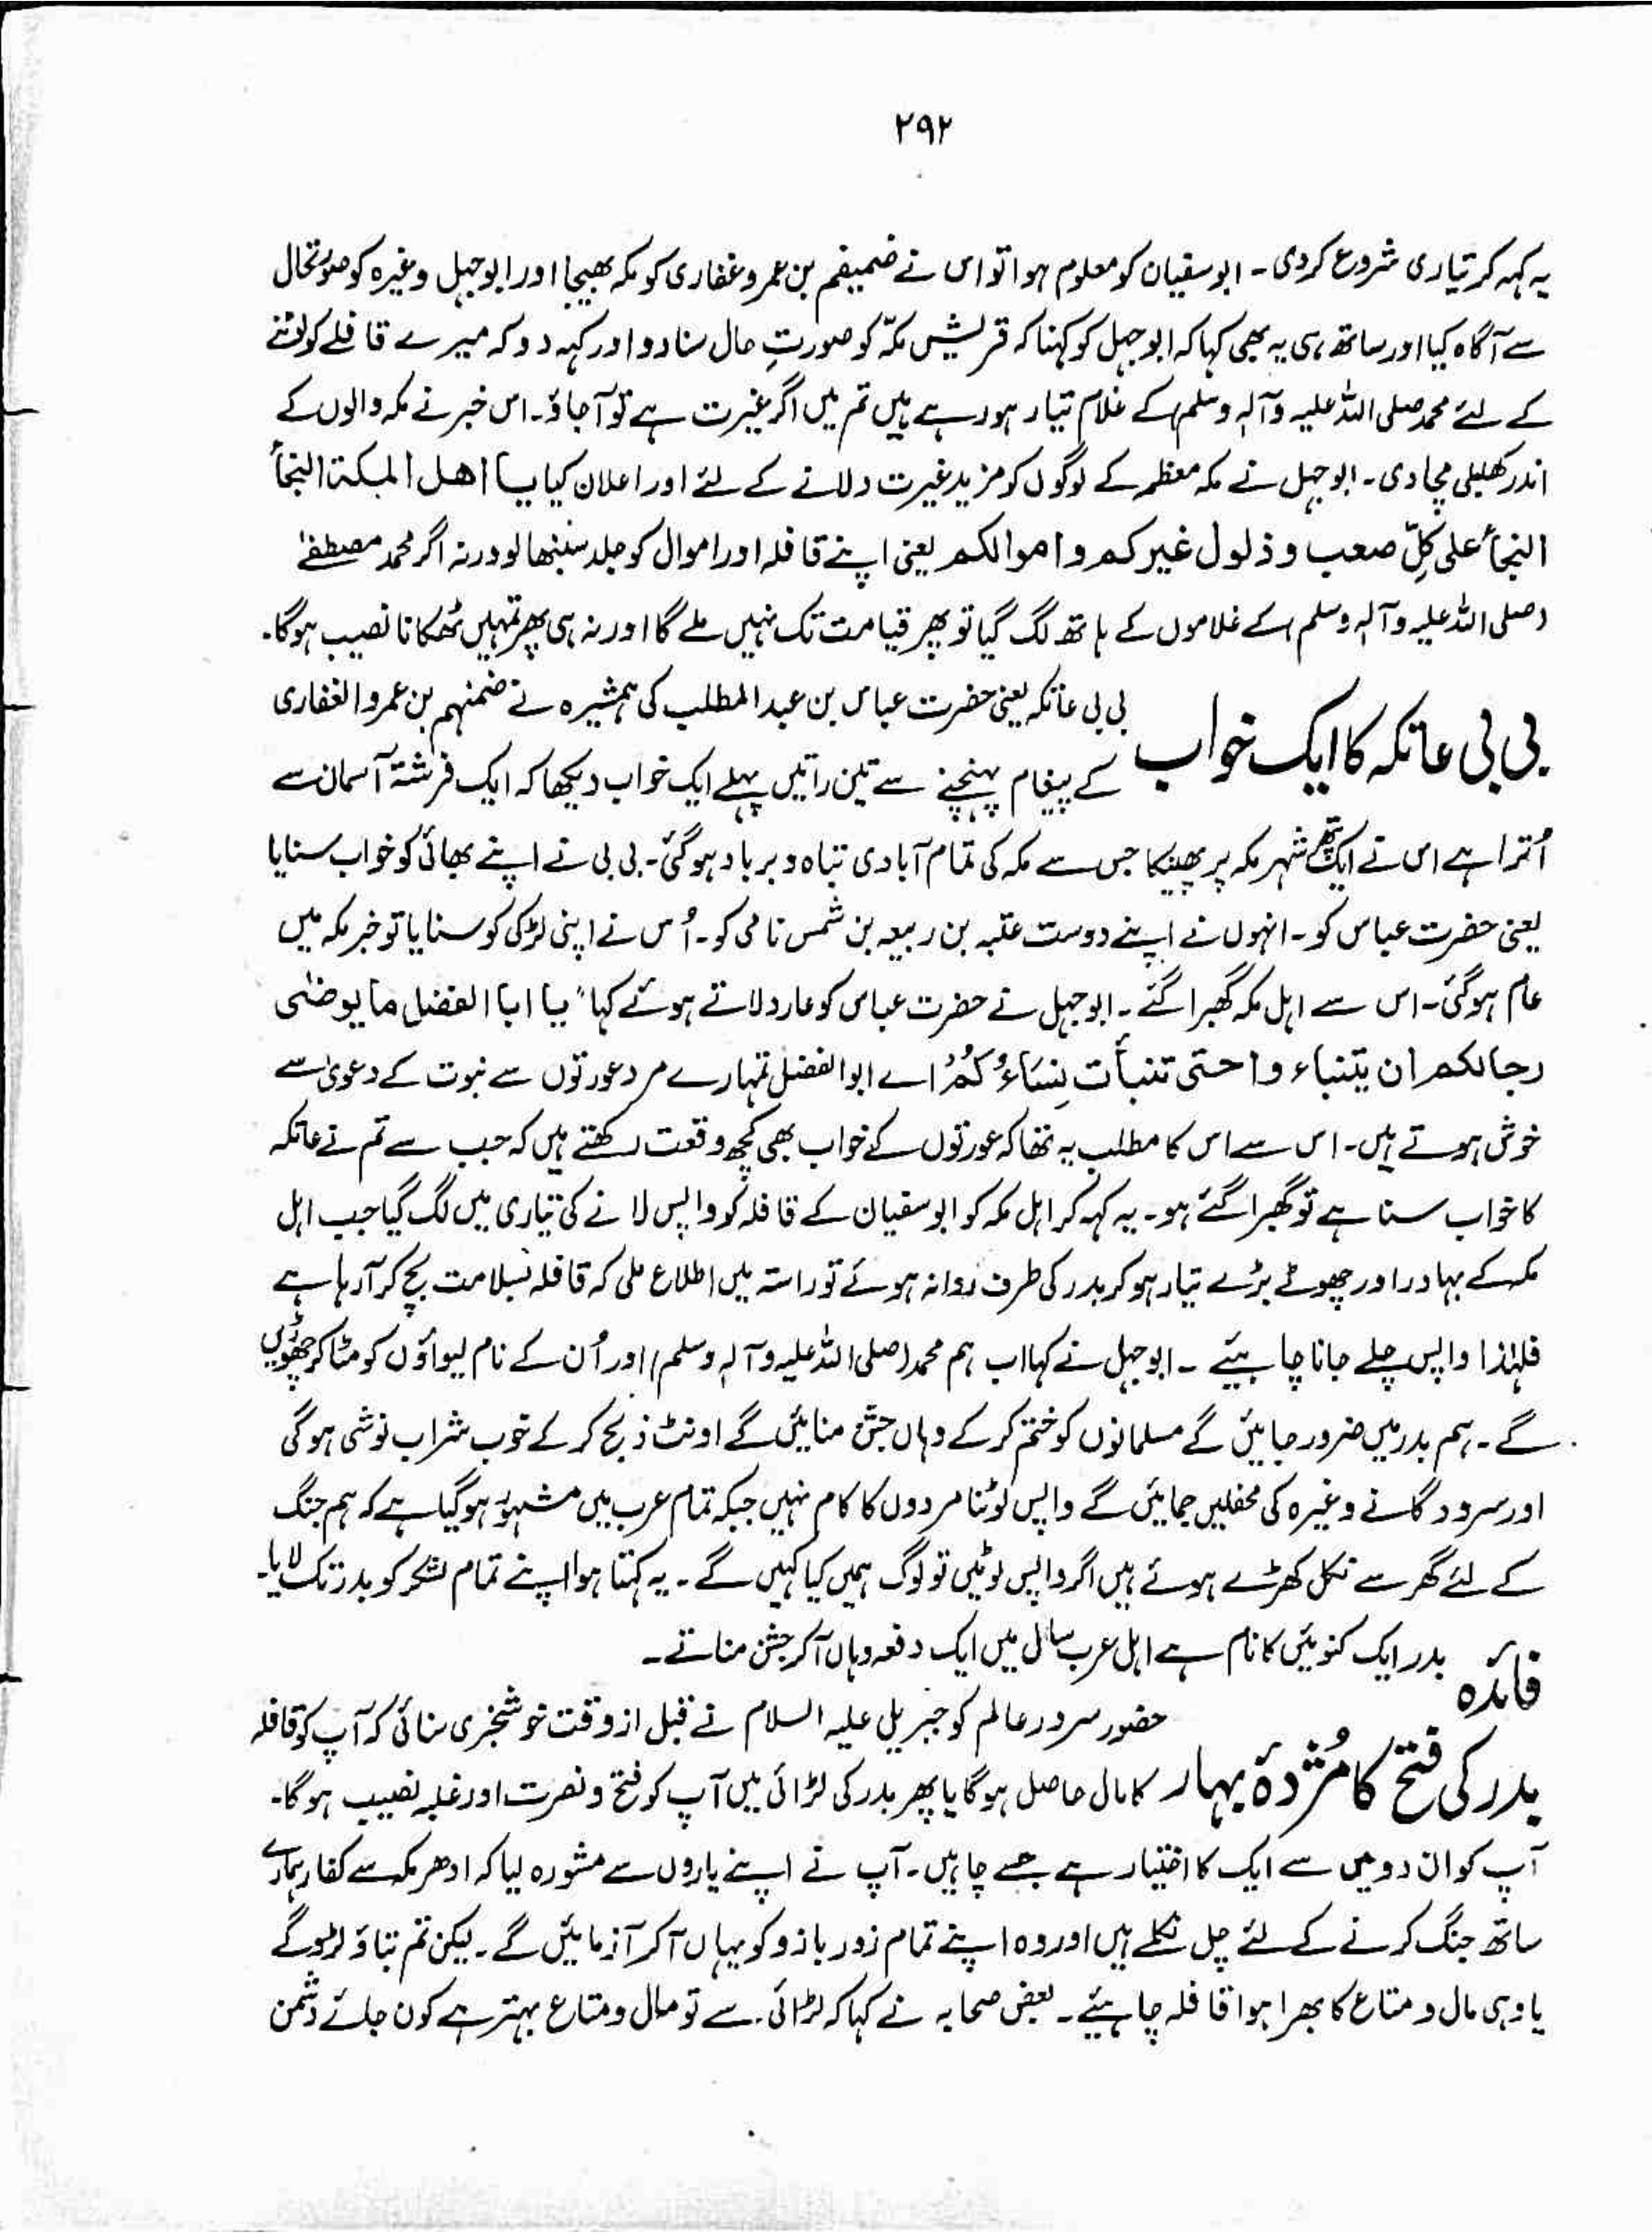 ۲۹۲
یہ کہہ کر تیاری شروع کردی۔ ابوسفیان کو معلوم ہوا تو اس نے ضمیفم بن عمرو غفاری کو مکہ بھیجا اور ابوجہل وغیرہ کو صورتحال
سے آگاہ کیا اور ساتھ ہی یہ بھی کہا کہ ابوجہل کو کہنا کہ قریش مکّہ کو صورتِ حال سنا دو اور کہہ دو کہ میرے قافلے کو لوٹنے
کے لئے محمد صلی اللہ علیہ وآلہٖ وسلم) کے غلام تیار ہو رہے ہیں تم میں اگر غیرت ہے تو آ جاؤ۔ اس خبر نے مکہ والوں کے
اندر کھلبلی مچا دی۔ ابوجہل نے مکہ معظمہ کے لوگوں کو مزید غیرت دلانے کے لئے اور اعلان کیا یا اھل المکۃ النجأ
النجأ علی کلِّ صعب و ذلول غیرکم و اموالکم یعنی اپنے قافلہ اور اموال کو جلد سنبھالو ورنہ اگر محمد مصطفےٰ
(صلی اللہ علیہ وآلہٖ وسلم) کے غلاموں کے ہاتھ لگ گیا تو پھر قیامت تک نہیں ملے گا اور نہ ہی پھر تمہیں ٹھکانا نصیب ہوگا۔
بی بی عاتکہ کا ایک خواب
بی بی عاتکہ یعنی حضرت عباس بن عبدالمطلب کی ہمشیرہ نے ضمنہم بن عمرو الغفاری
کے پیغام پہنچنے سے تین راتیں پہلے ایک خواب دیکھا کہ ایک فرشتہ آسمان سے
اُترا ہے اس نے ایک پتھر شہر مکہ پر پھینکا جس سے مکہ کی تمام آبادی تباہ و برباد ہوگئی۔ بی بی نے اپنے بھائی کو خواب سنایا
یعنی حضرت عباس کو۔ انہوں نے اپنے دوست عتبہ بن ربیعہ بن شمس نامی کو۔ اُس نے اپنی لڑکی کو سنایا تو خبر مکہ میں
عام ہوگئی۔ اس سے اہل مکہ گھبرا گئے۔ ابوجہل نے حضرت عباس کو عار دلاتے ہوئے کہا "یا ابا الفضل ما یوضیٰ
رجالکم ان یتنباء وا حتی تنبأت نِسَاءُکُمُ اے ابوالفضل تمہارے مرد عورتوں سے نبوت کے دعویٰ سے
خوش ہوتے ہیں۔ اس سے اس کا مطلب یہ تھا کہ عورتوں کے خواب بھی کچھ وقعت رکھتے ہیں کہ جب سے تم نے عاتکہ
کا خواب سنا ہے تو گھبرا گئے ہو۔ یہ کہہ کر اہل مکہ کو ابوسفیان کے قافلہ کو واپس لانے کی تیاری میں لگ گیا جب اہل
مکہ کے بہادر اور چھوٹے بڑے تیار ہو کر بدر کی طرف روانہ ہوئے تو راستہ میں اطلاع ملی کہ قافلہ بسلامت بچ کر آ رہا ہے
فلہٰذا واپس چلے جانا چاہیئے۔ ابوجہل نے کہا اب ہم محمد (صلی اللہ علیہ وآلہ وسلم) اور اُن کے نام لیواؤں کو مٹا کر چھوڑیں
گے۔ ہم بدر میں ضرور جائیں گے مسلمانوں کو ختم کرکے وہاں جشن منائیں گے اونٹ ذبح کرکے خوب شراب نوشی ہوگی
اور سرود گانے وغیرہ کی محفلیں جمائیں گے واپس لوٹنا مردوں کا کام نہیں جبکہ تمام عرب میں مشہور ہوگیا ہے کہ ہم جنگ
کے لئے گھر سے نکل کھڑے ہوئے ہیں اگر واپس لوٹیں تو لوگ ہمیں کیا کہیں گے۔ یہ کہتا ہوا اپنے تمام لشکر کو بدر تک لایا۔
فائدہ بدر ایک کنوئیں کا نام ہے اہل عرب سال میں ایک دفعہ وہاں آ کر جشن مناتے۔
بدر کی فتح کا مُژدۂ بہار
حضور سرور عالم کو جبریل علیہ السلام نے قبل از وقت خوشخبری سنائی کہ آپ کو قافلہ
کا مال حاصل ہوگا یا پھر بدر کی لڑائی میں آپ کو فتح و نصرت اور غلبہ نصیب ہوگا۔
آپ کو ان دو میں سے ایک کا اختیار ہے جسے چاہیں۔ آپ نے اپنے یاروں سے مشورہ لیا کہ ادھر مکہ سے کفار ہمارے
ساتھ جنگ کرنے کے لئے چل نکلے ہیں اور وہ اپنے تمام زور بازو کو یہاں آ کر آزمائیں گے۔ لیکن تم بتاؤ لڑوگے
یا وہی مال و متاع کا بھرا ہوا قافلہ چاہیئے۔ بعض صحابہ نے کہا کہ لڑائی سے تو مال و متاع بہتر ہے کون جائے دشمن